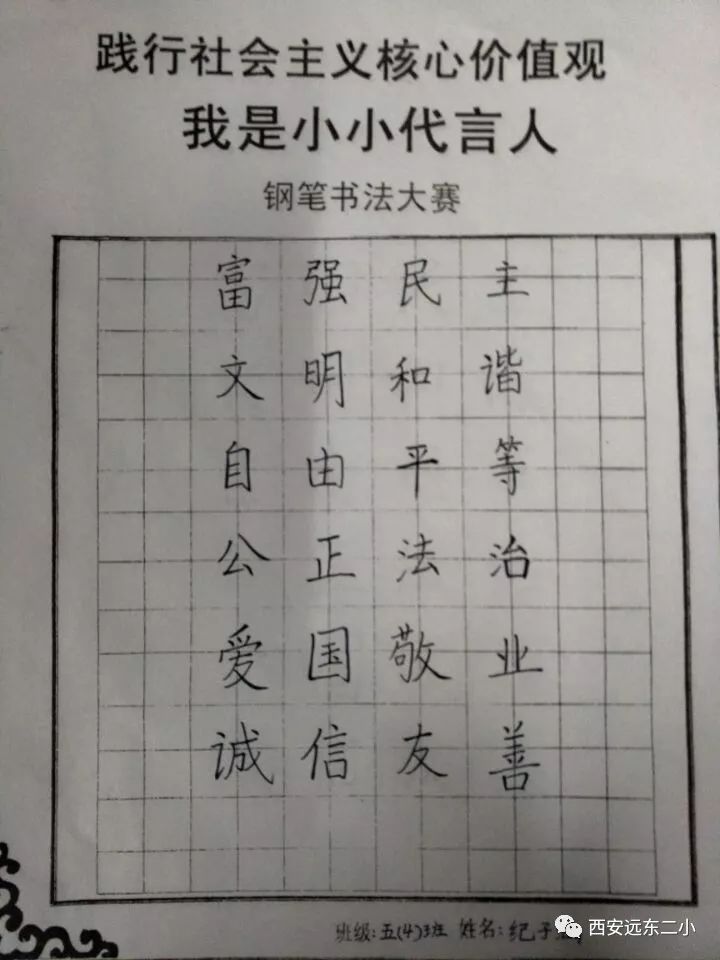 践行社会主义核心价值观
我是小小代言人
钢笔书法大赛
富强民主
文明和谐
自由平等
公正法治
爱国敬业
诚信友善
班级:五(4)班 姓名:纪子
西安远东二小